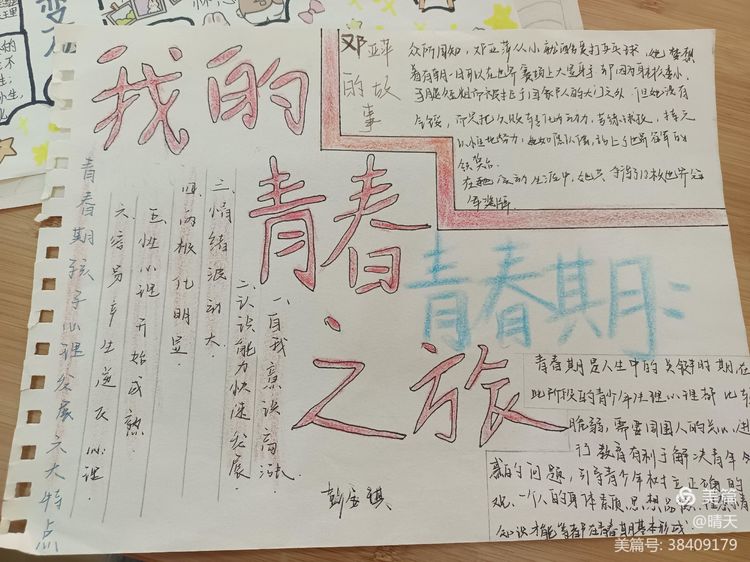 我的
青春
之旅
邓亚萍
的故
事
众所周知，邓亚萍从小就酷爱打乒乓球，她梦想
着有朝一日可以在世界赛场上大显身手，却因为身材矮小，
手腿粗短而被拒于国家队的大门之外，但她没有
气馁，而是把失败转化为动力，苦练球技，持之
以恒地努力，她如愿以偿，站上了世界冠军的
领奖台。
在她运动生活中，她共夺得18枚世界冠
军奖牌
青春期：
青春期是人生中的关键时期，在
此阶段的青少年生理心理都比较
脆弱，需要周围人的关心，进
行教育有利于解决青年
的问题，引导青少年树立正确的
观，一个人的身体素质，思想品质
知识才能等都在青春期基本形成
青春期孩子心理发展六大特点
一、自我意识高涨．
二、认识能力快速发展．
三、情绪波动大．
四、两极化明显．
五、性心理开始成熟．
六、容易产生逆反心理．
美篇
@晴天
美篇号: 38409179